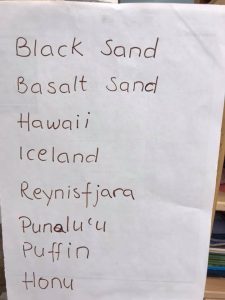 Black Sand
Basalt Sand
Hawaii
Iceland
Reynisfjara
Punalu'u
Puffin
Honu